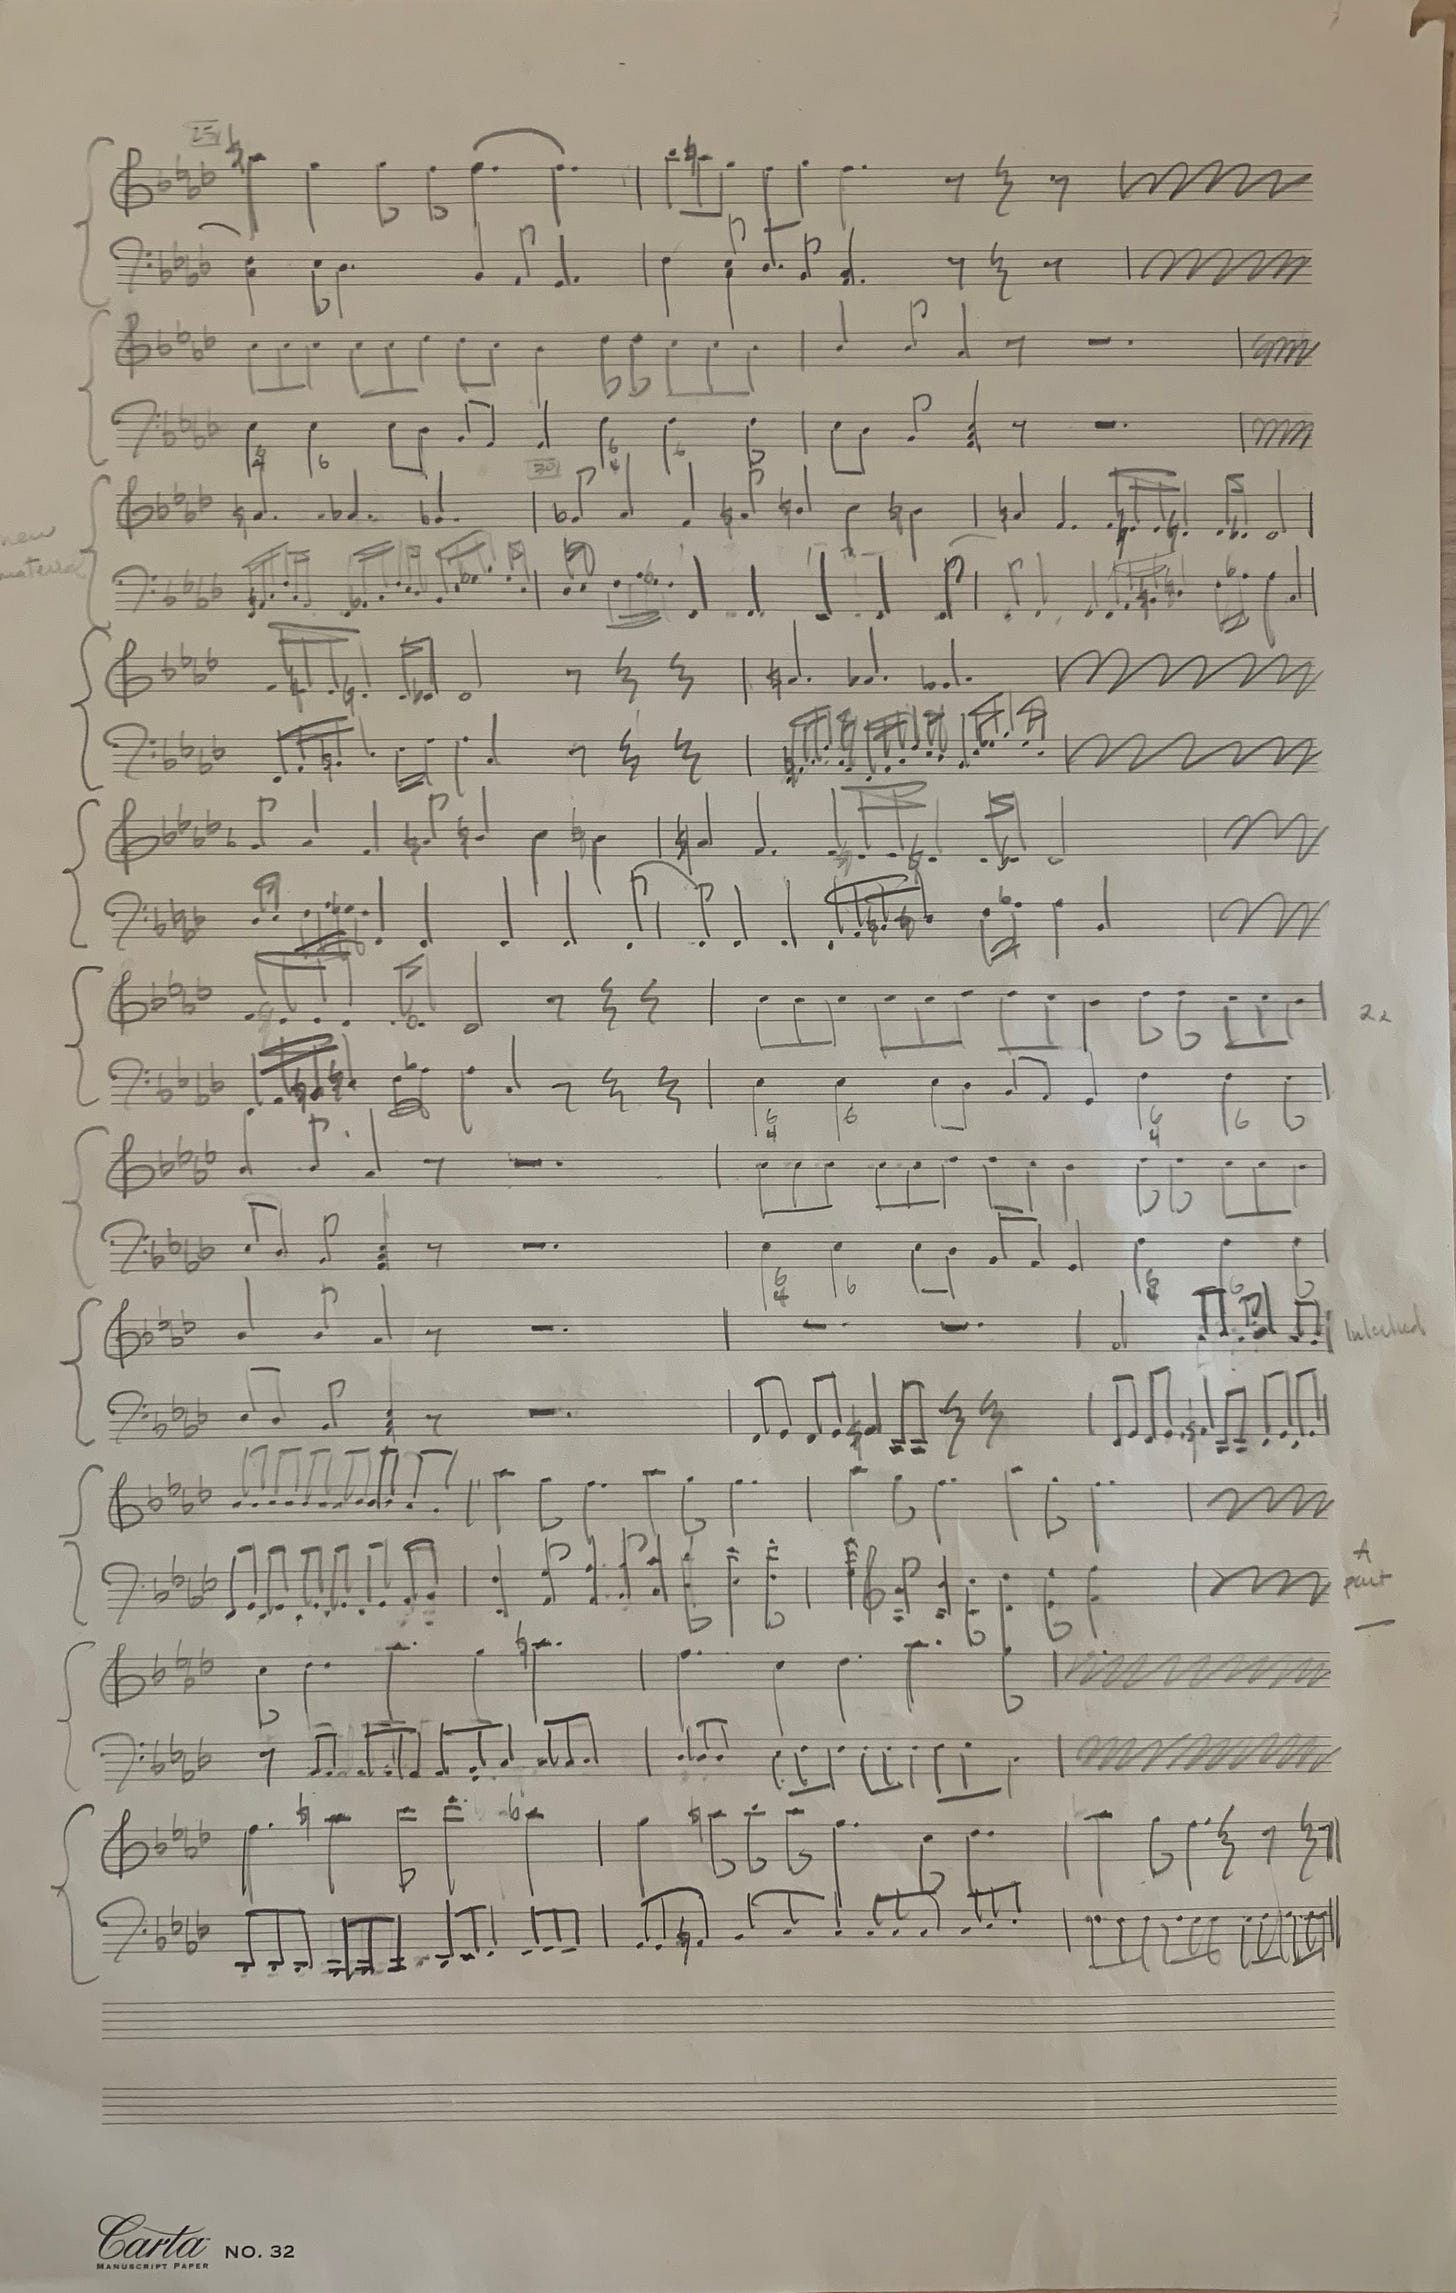 25
30
new
material
2x
A
part
Carta NO. 32
MANUSCRIPT PAPER